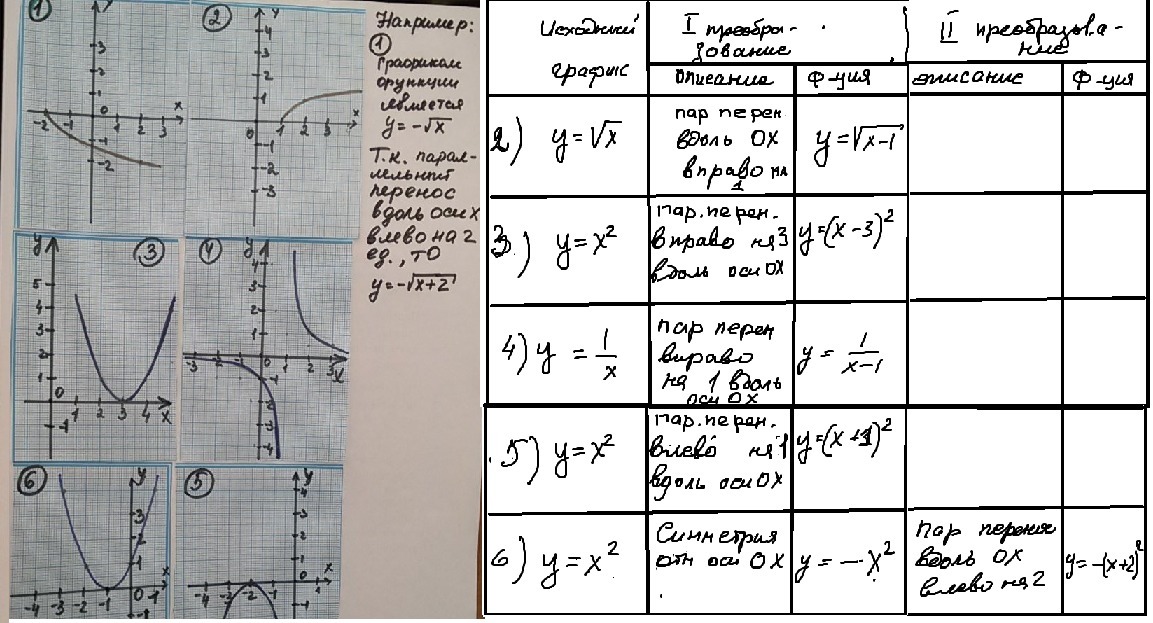 1
y
3
2
1
0
-2
-1
1
2
3
x
-1
-2
2
y
4
3
2
1
0
1
2
3
4
x
-1
-2
-3
Например:
1
Графиком
функции
является
y=-√x
Т.к. парал-
лельный
перенос
вдоль оси x
влево на 2
ед., то
y=-√x+2
3
y
5
4
3
2
1
0
1
2
3
4
x
-1
4
y
4
3
2
1
-3
-2
-1
0
1
2
3
x
-1
-2
-3
-4
6
y
3
2
1
-4
-3
-2
-1
0
1
-1
5
y
4
3
2
1
-4
-3
-2
-1
0
1
-1
Исходный график
I преобра-зование
II преобразова-ние
описание
ф-ция
описание
ф-ция
2) y=√x
пар перен
вдоль OX
вправо на
1
y=√x-1
3) y=x²
пар.перен.
вправо на 3
вдоль оси OX
y=(x-3)²
4) y = 1/x
пар перен
вправо
на 1 вдоль
оси OX
y = 1/x-1
5) y=x²
пар.перен.
влево на 1
вдоль оси OX
y=(x+1)²
6) y=x²
Симметрия
отн оси OX
y = -x²
пар перенос
вдоль OX
влево на 2
y=-(x+2)²